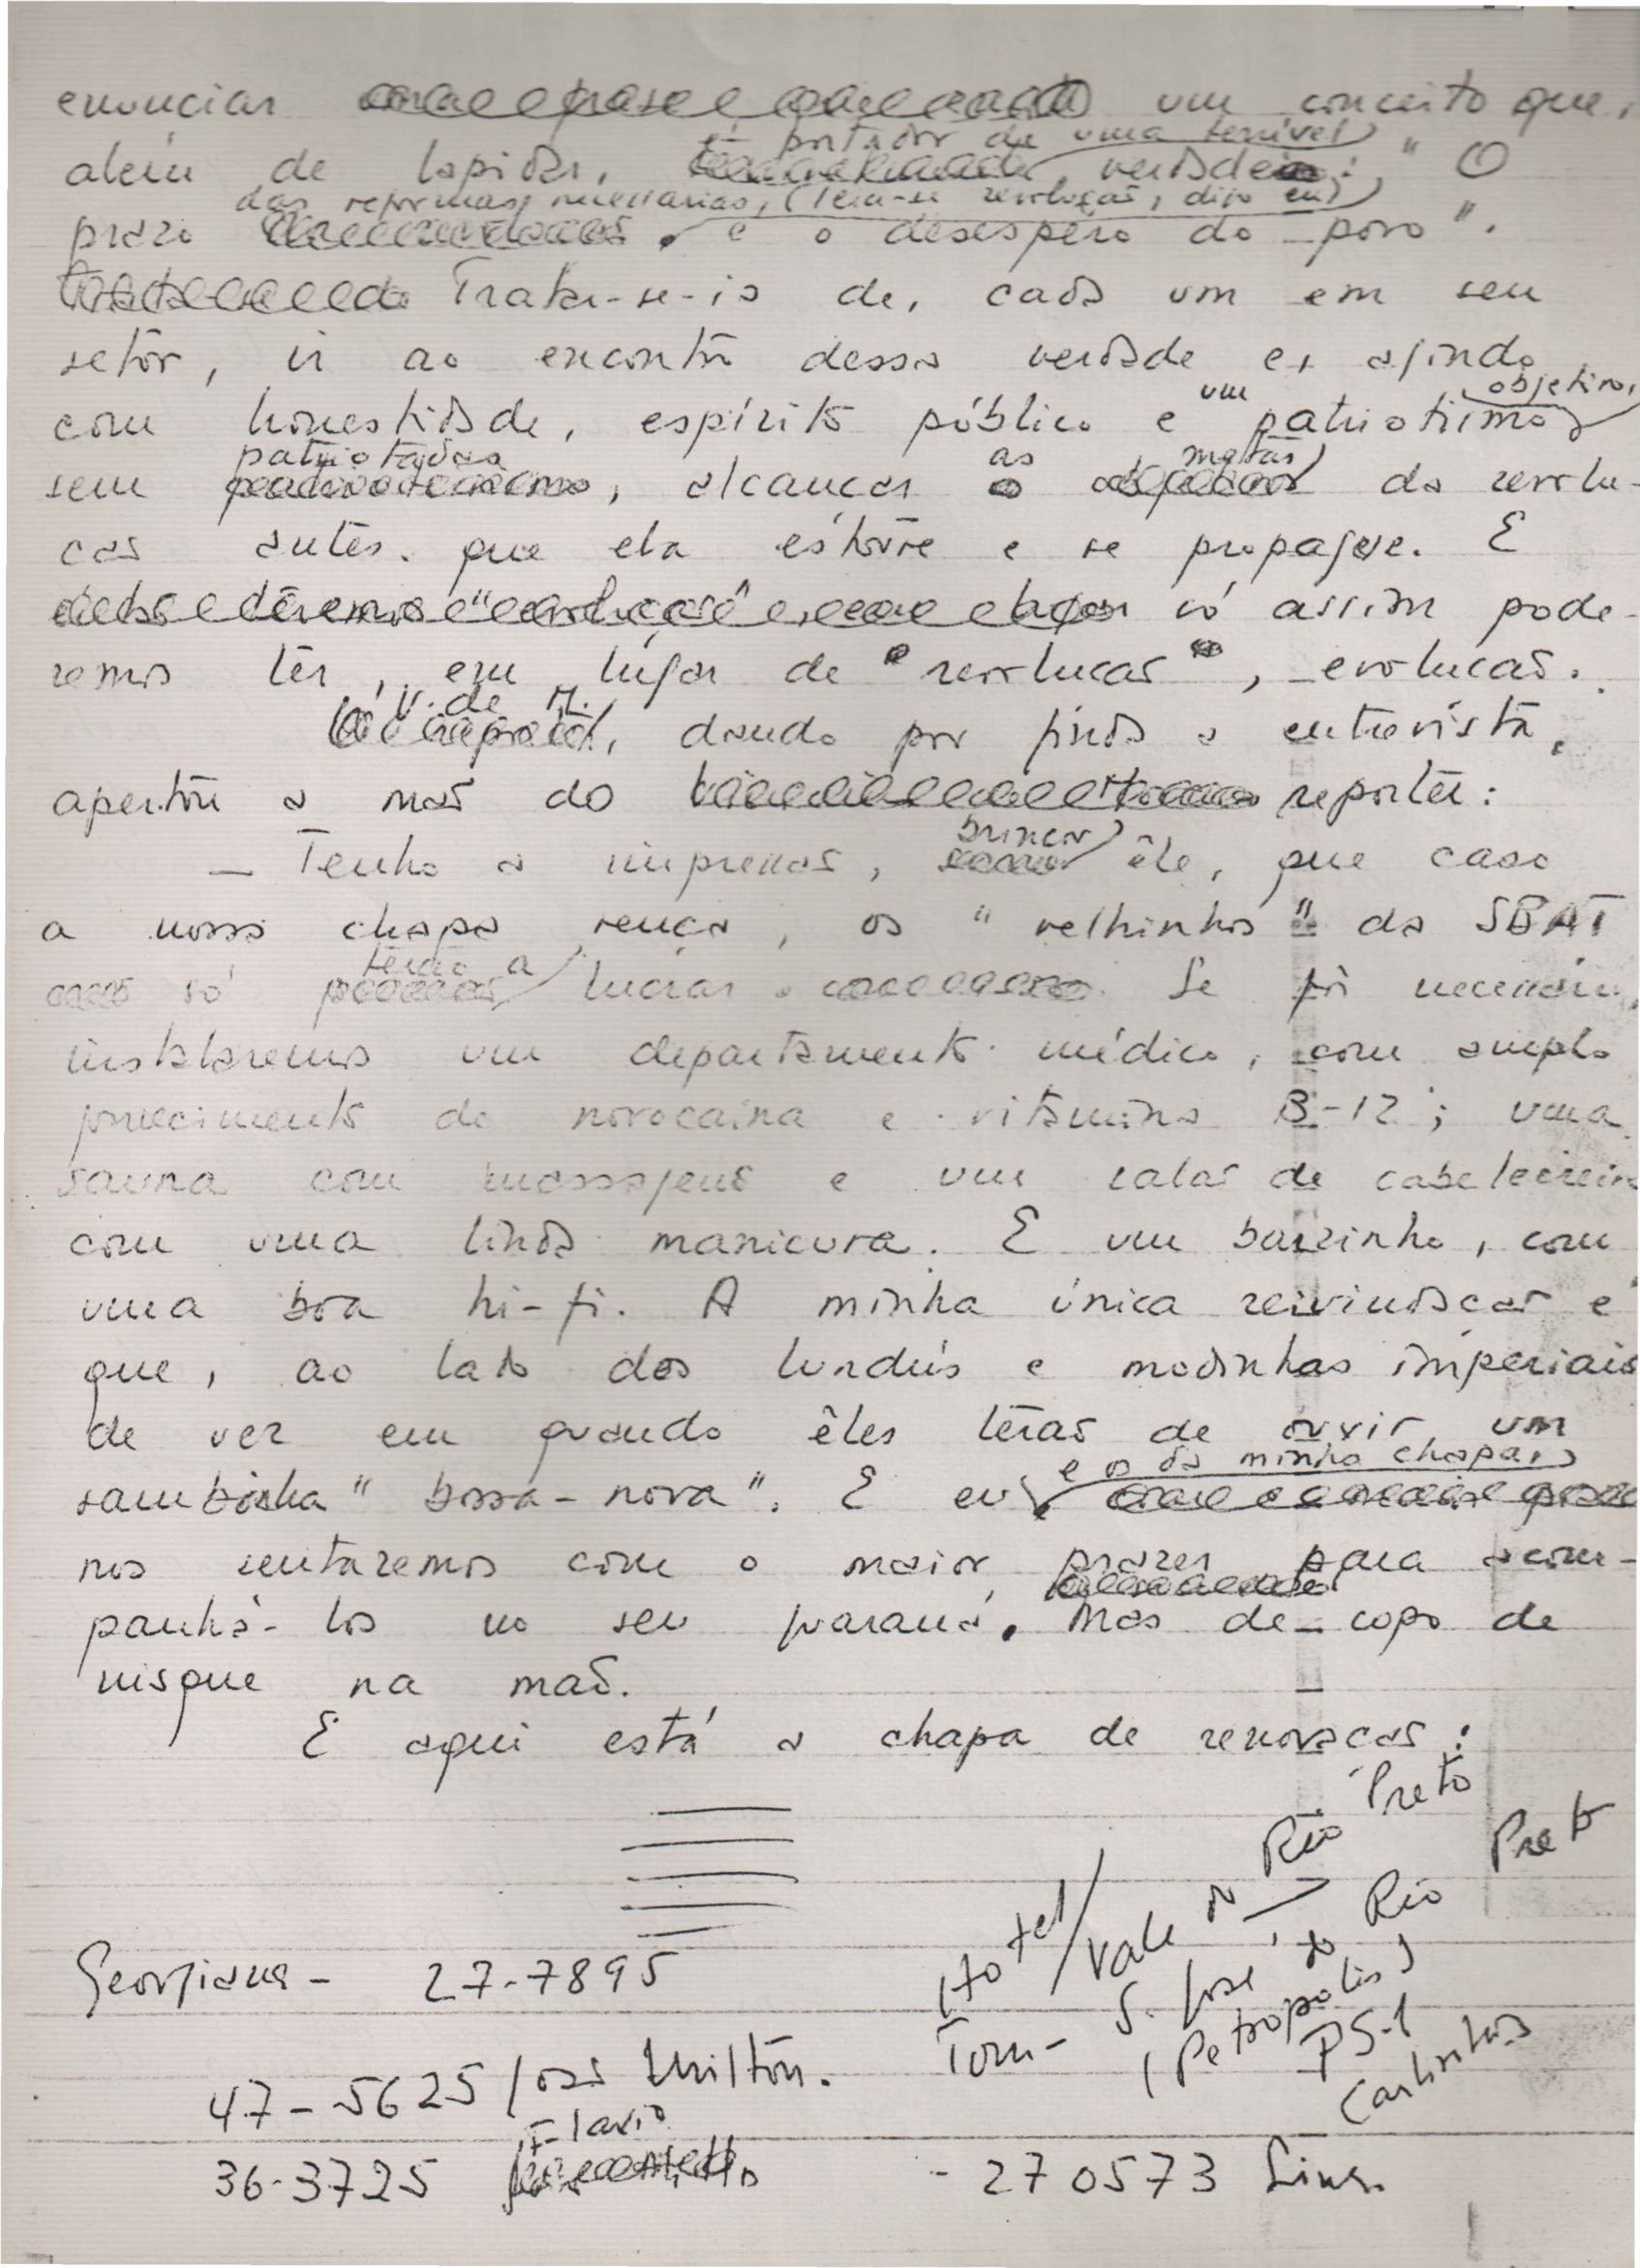 enunciar um conceito que,
além de lapidar, é portador de uma terrível verdade: "O
prazo das reformas necessárias, (leia-se revolução, digo eu) é o desespêro do povo".
Tratar-se-ia de, cada um em seu
setôr, ir ao encontro dessa verdade e, agindo
com honestidade, espírito público e um patriotismo objetivo,
sem patriotadas, alcançar as metas da revolu-
ção antes que ela estoure e se propague. E
só assim pode-
remos ter, em lugar de "revolução", evolução.
V. de M., dando por finda a entrevista,
apertou a mão do reporter:
— Tenho a impressão, brincou êle, que caso
a nossa chapa vença, os "velhinhos" da SBAT
só terão a lucrar. Se fôr necessário,
instalaremos um departamento médico, com amplo
fornecimento de novocaína e vitamina B-12; uma
sauna com massagens e um salão de cabeleireiro
com uma linda manicura. E um barzinho, com
uma boa hi-fi. A minha única reivindicação é
que, ao lado dos lundús e modinhas imperiais
de vez em quando êles terão de ouvir um
sambinha "bossa-nova". E eu e os da minha chapa,
nos sentaremos com o maior prazer para acom-
panhá-los no seu guaraná. Mas de copo de
uisque na mão.
E aqui está a chapa de renovação:
Georgiana - 27-7895
Hotel / Vale Rio Preto
Tom - S. José do Rio Preto
(Petropolis)
PS-1
Carlinhos
47-5625 / José Milton.
36-3725 Flavio
- 270573